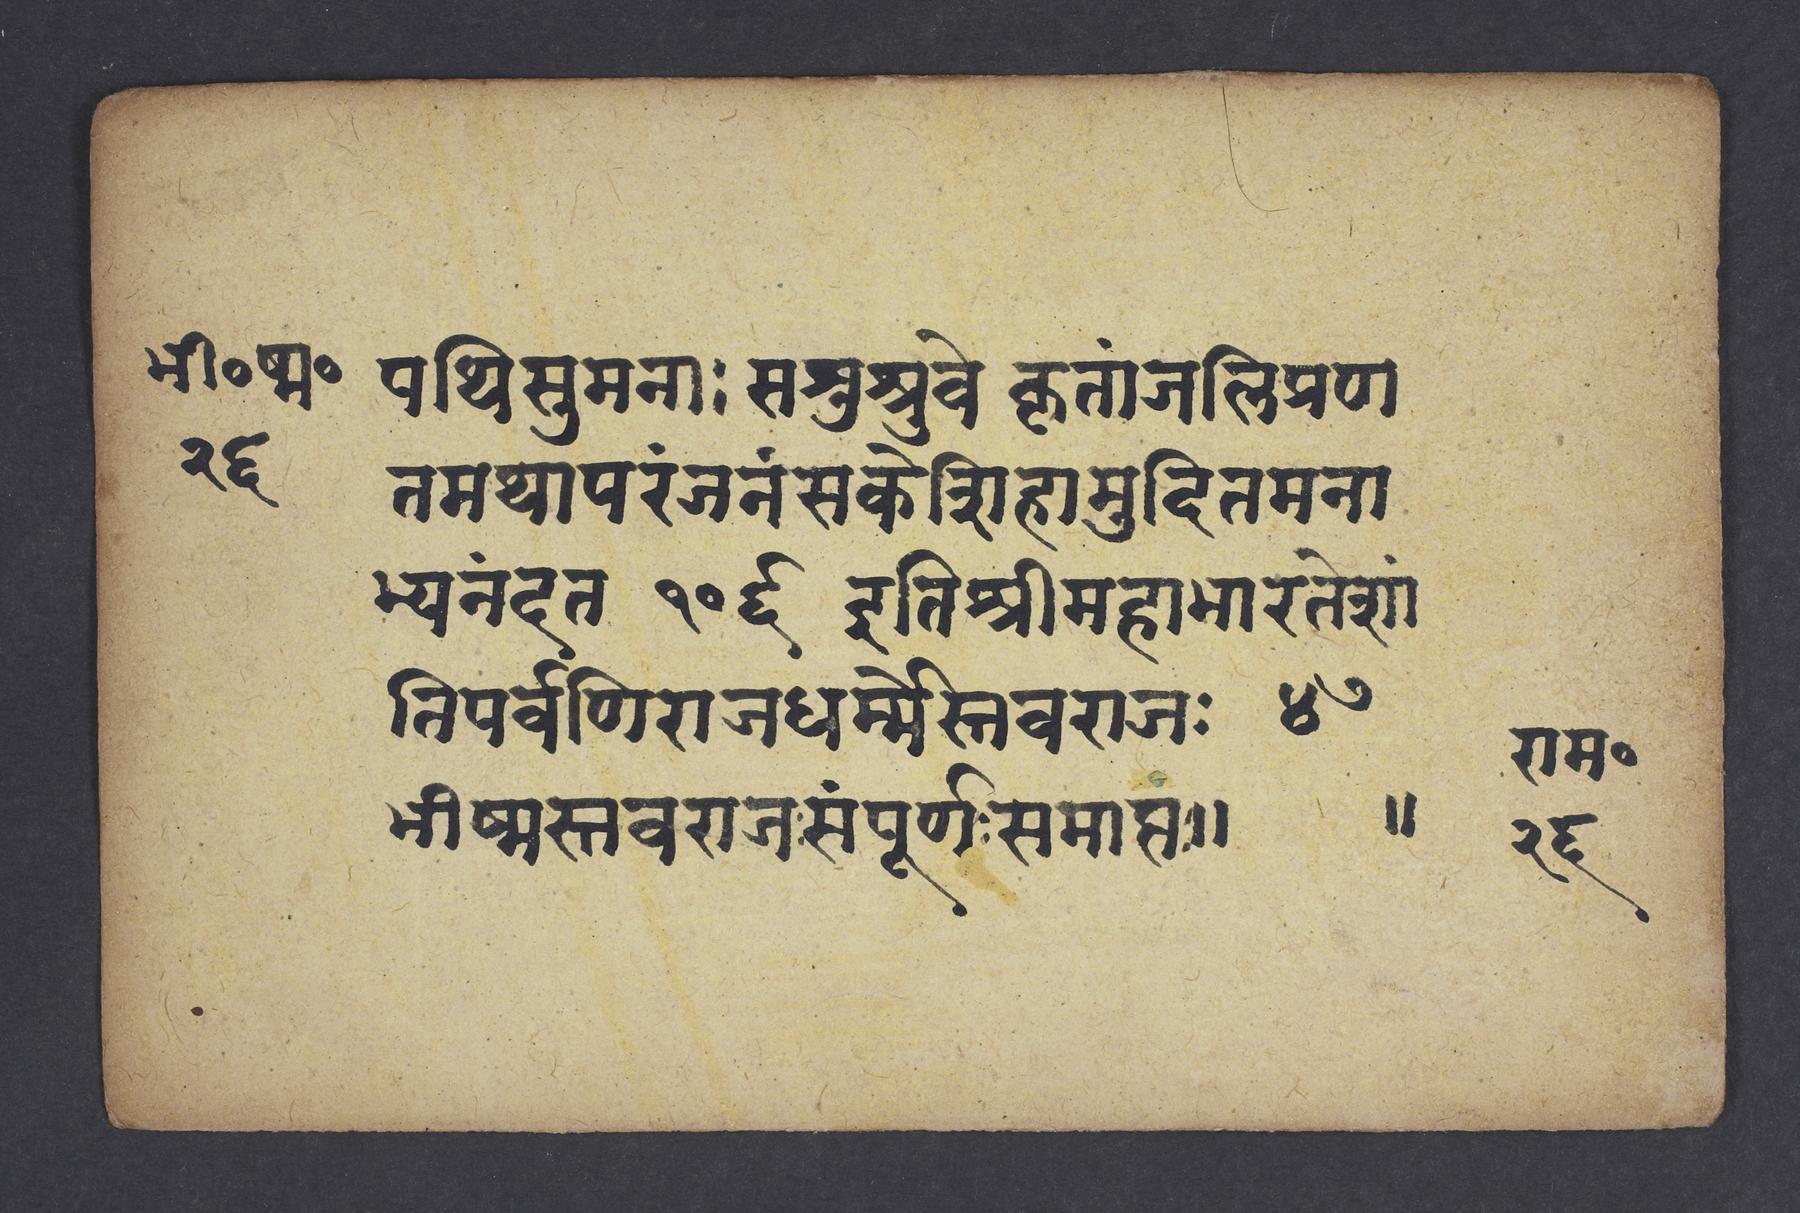 भी॰ष्म॰
२६
पथिसुमनाः सश्रुश्रुवे कृतांजलिप्रण
तमथापरंजनंसकेशिहामुदितमना
भ्यनंदत १०६ इतिश्रीमहाभारतेशां
तिपर्वणिराजधर्म्मेस्तवराजः ४७
भीष्मस्तवराजःसंपूर्णःसमाप्तः॥ ॥
राम॰
२६